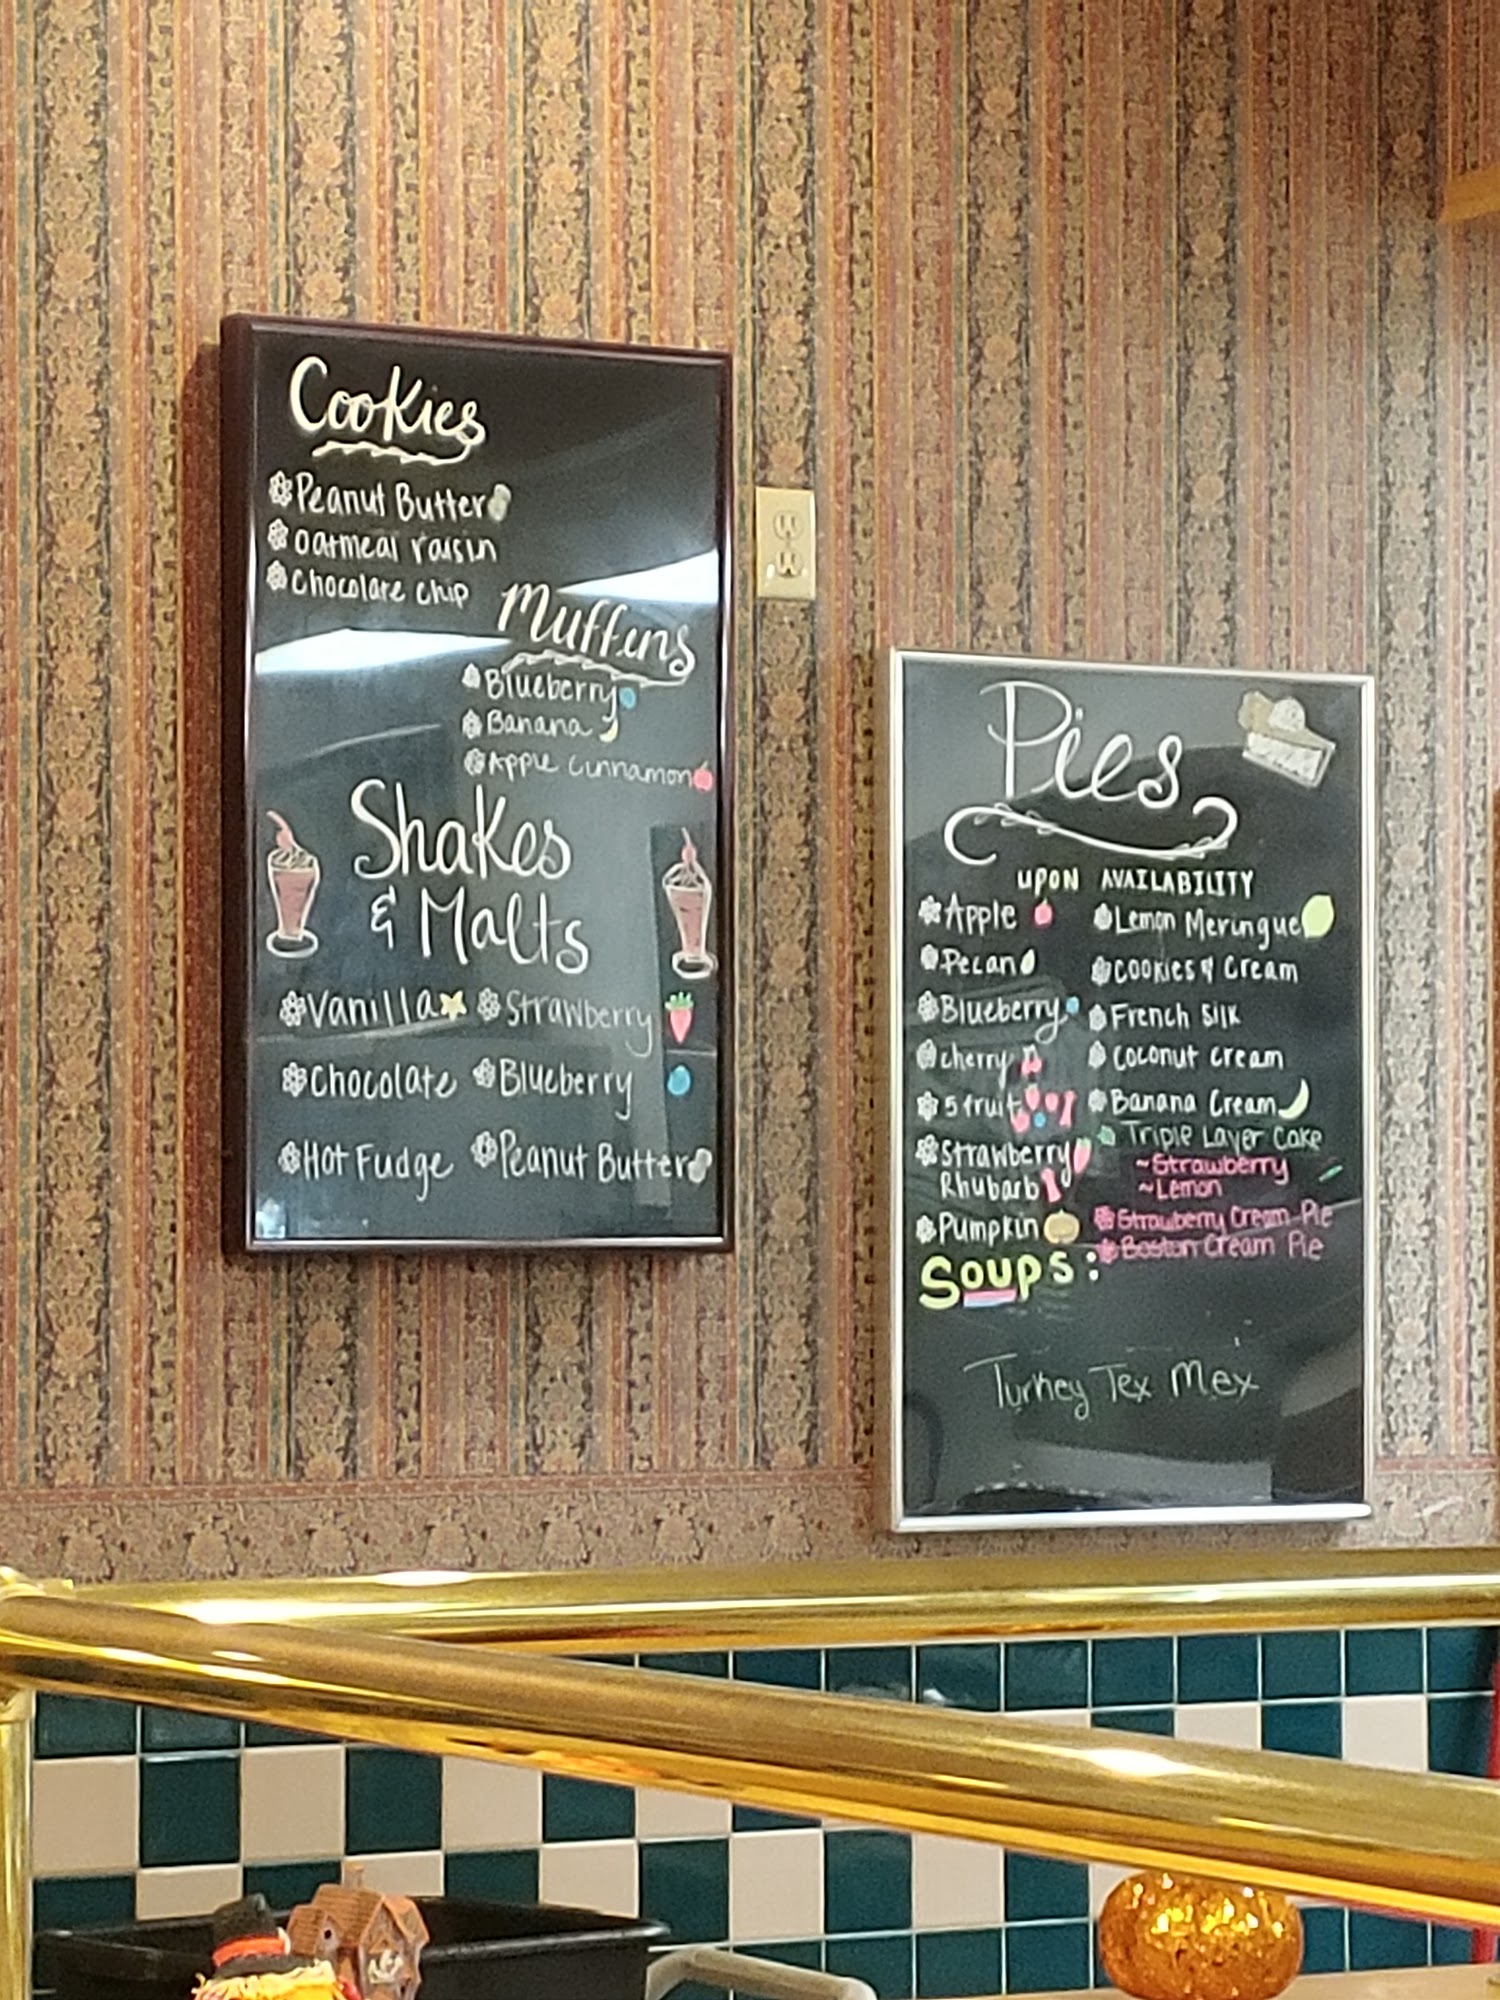 Cookies
Peanut Butter
oatmeal raisin
Chocolate chip
Muffins
Blueberry
Banana
Apple cinnamon
Shakes
& Malts
Vanilla Strawberry
Chocolate Blueberry
Hot Fudge Peanut Butter
Pies
UPON AVAILABILITY
Apple
Pecan
Blueberry
cherry
5 fruit
Strawberry
Rhubarb
Pumpkin
Lemon Meringue
Cookies & Cream
French Silk
Coconut cream
Banana Cream
Triple Layer Cake
~Strawberry
~Lemon
Strawberry Cream Pie
Boston Cream Pie
Soups:
Turkey Tex Mex